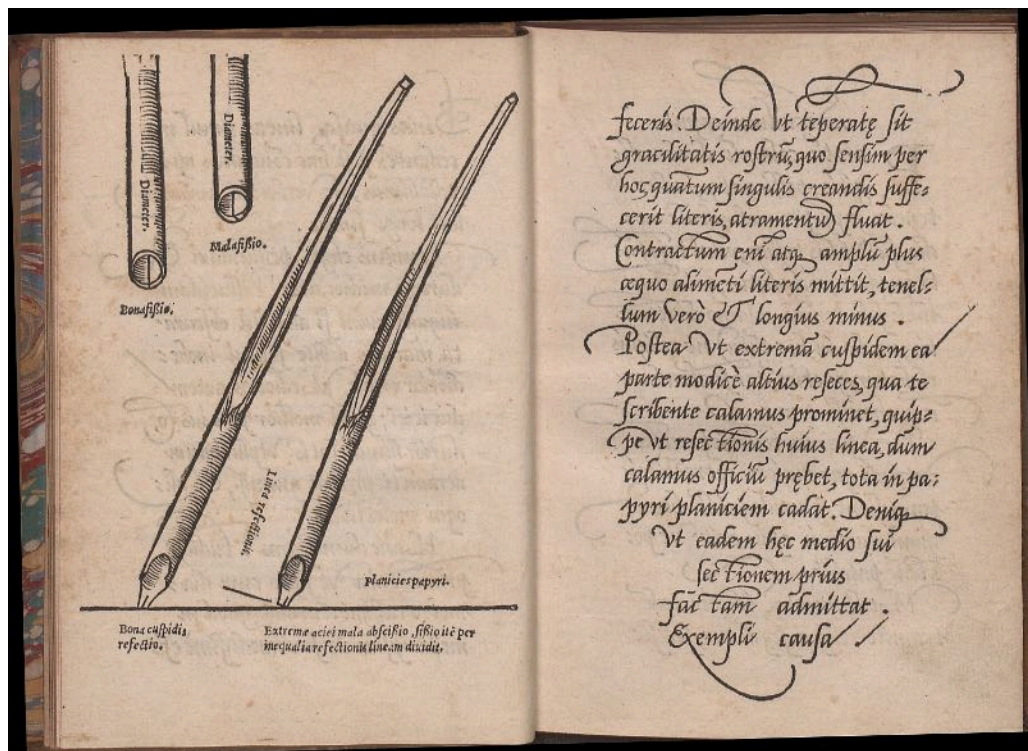 Diameter.
Diameter.
Malafißio.
Bonafißio.
Linea resectionis.
Planicies papyri.
Bona cuspidis
resectio.
Extremæ aciei mala abscißio, fißio itē per
inequalia resectionis lineam diuidit.
feceris. Deinde vt tēperatę sit
gracilitatis rostrū, quo sensim per
hoc, quātum singulis creandis suffe-
cerit literis, atramentū fluat.
Contractum enī atq, amplū plus
æquo alimēti literis mittit, tenel-
lum verò & longius minus.
Postea vt extremā cuspidem ea
parte modicè altius reseces, qua te
scribente calamus prominet, quip-
pe vt resectionis huius linea, dum
calamus officiū prębet, tota in pa-
pyri planiciem cadat. Deniq,
vt eadem hęc medio sui
sectionem prius
factam admittat.
Exempli causa